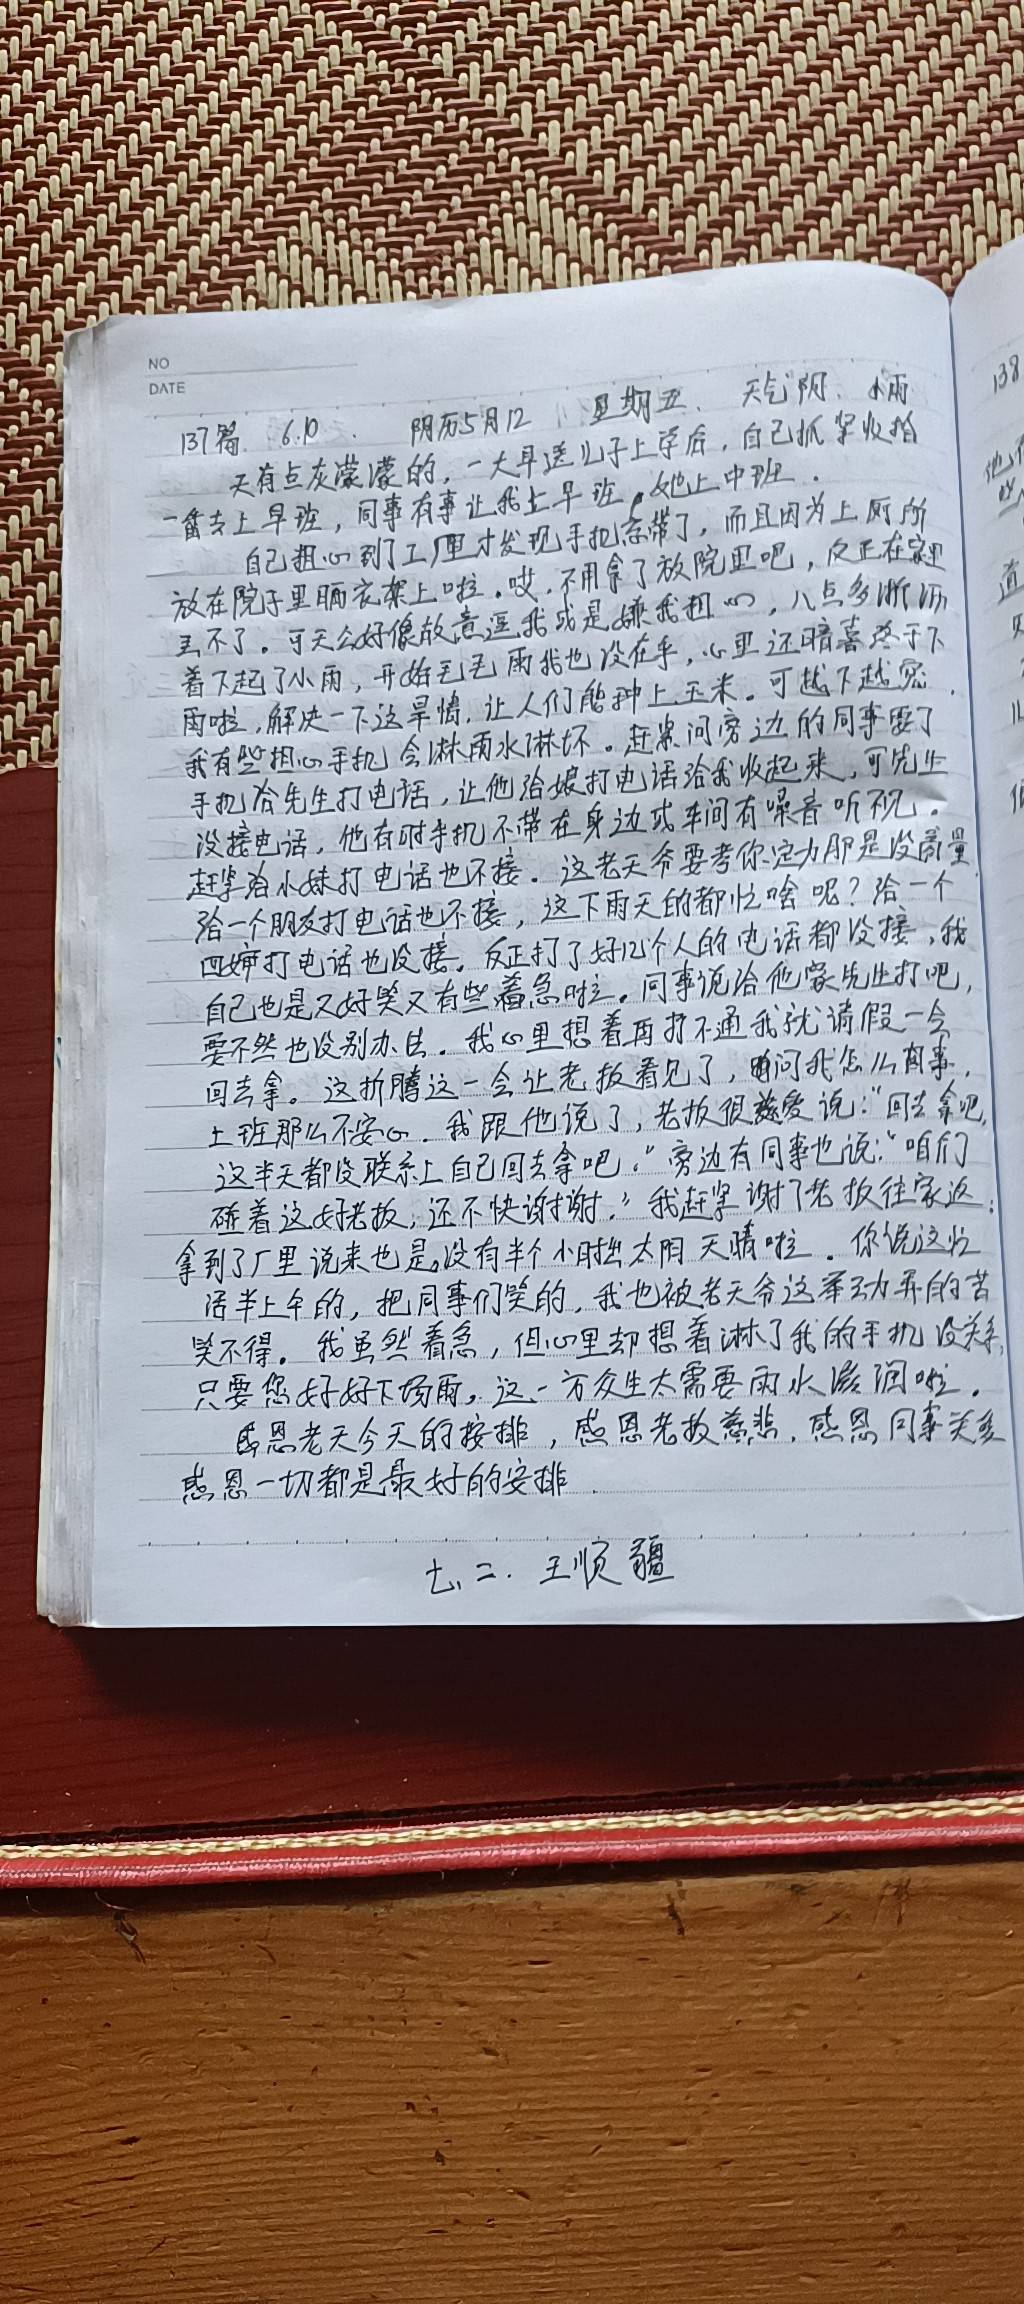 NO
DATE
137篇 6.10. 阴历5月12 星期五. 天气阴. 小雨
天有点灰濛濛的，一大早送儿子上学后，自己抓紧收拾
一番去上早班，同事有事让我上早班，她上中班.
自己粗心到了工厂里才发现手机忘带了，而且因为上厕所
放在院子里晒衣架上啦。哎.不用拿了放院里吧，反正在家里
丢不了。可天公好像故意逗我或是嫌我粗心，八点多淅沥
着下起了小雨，开始毛毛雨我也没在乎，心里还暗喜终于下
雨啦，解决一下这旱情，让人们能种上玉米。可越下越密，
我有些担心手机会淋雨水淋坏。赶紧问旁边的同事要了
手机给先生打电话，让他给娘打电话给我收起来，可先生
没接电话，他有时手机不带在身边或车间有噪音听不见。
赶紧给小妹打电话也不接。这老天爷要考你定力那是没商量，
给一个朋友打电话也不接，这下雨天的都忙啥呢？给一个
四婶打电话也没接。反正打了好几个人的电话都没接，我
自己也是又好笑又有些着急啦。同事说给他家先生打吧，
要不然也没别办法。我心里想着再打不通我就请假一会
回去拿。这折腾这一会让老板看见了，问我怎么有事，
上班那么不安心。我跟他说了，老板很慈爱说：“回去拿吧，
这半天都没联系上自己回去拿吧。”旁边有同事也说：“咱们
碰着这好老板，还不快谢谢。”我赶紧谢了老板往家返；
拿到了厂里说来也是。没有半个小时出太阳天晴啦。你说这忙
活半上午的，把同事们笑的，我也被老天爷这举动弄的苦
笑不得。我虽然着急，但心里却想着淋了我的手机没关系，
只要您好好下场雨。这一方众生太需要雨水滋润啦。
感恩老天今天的按排，感恩老板慈悲，感恩同事关爱
感恩一切都是最好的安排.
七、二. 王顺疆
138